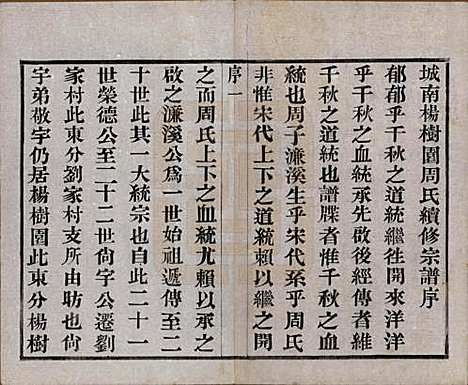 城南楊樹圍周氏續修宗譜序
郁郁乎千秋之道統繼往開來洋洋
乎千秋之血統承先啟後經傳者維
千秋之道統也譜牒者惟千秋之血
統也周子濂溪生乎宋代系乎周氏
非惟宋代上下之道統賴以繼之開
序一
之而周氏上下之血統尤賴以承之
啟之濂溪公爲一世始祖遞傳至二
十世此其一大統宗也自此二十一
世榮德公至二十二世尙宇公遷劉
家村此東分劉家村支所由昉也尙
宇弟敬宇仍居楊樹圍此東分楊樹